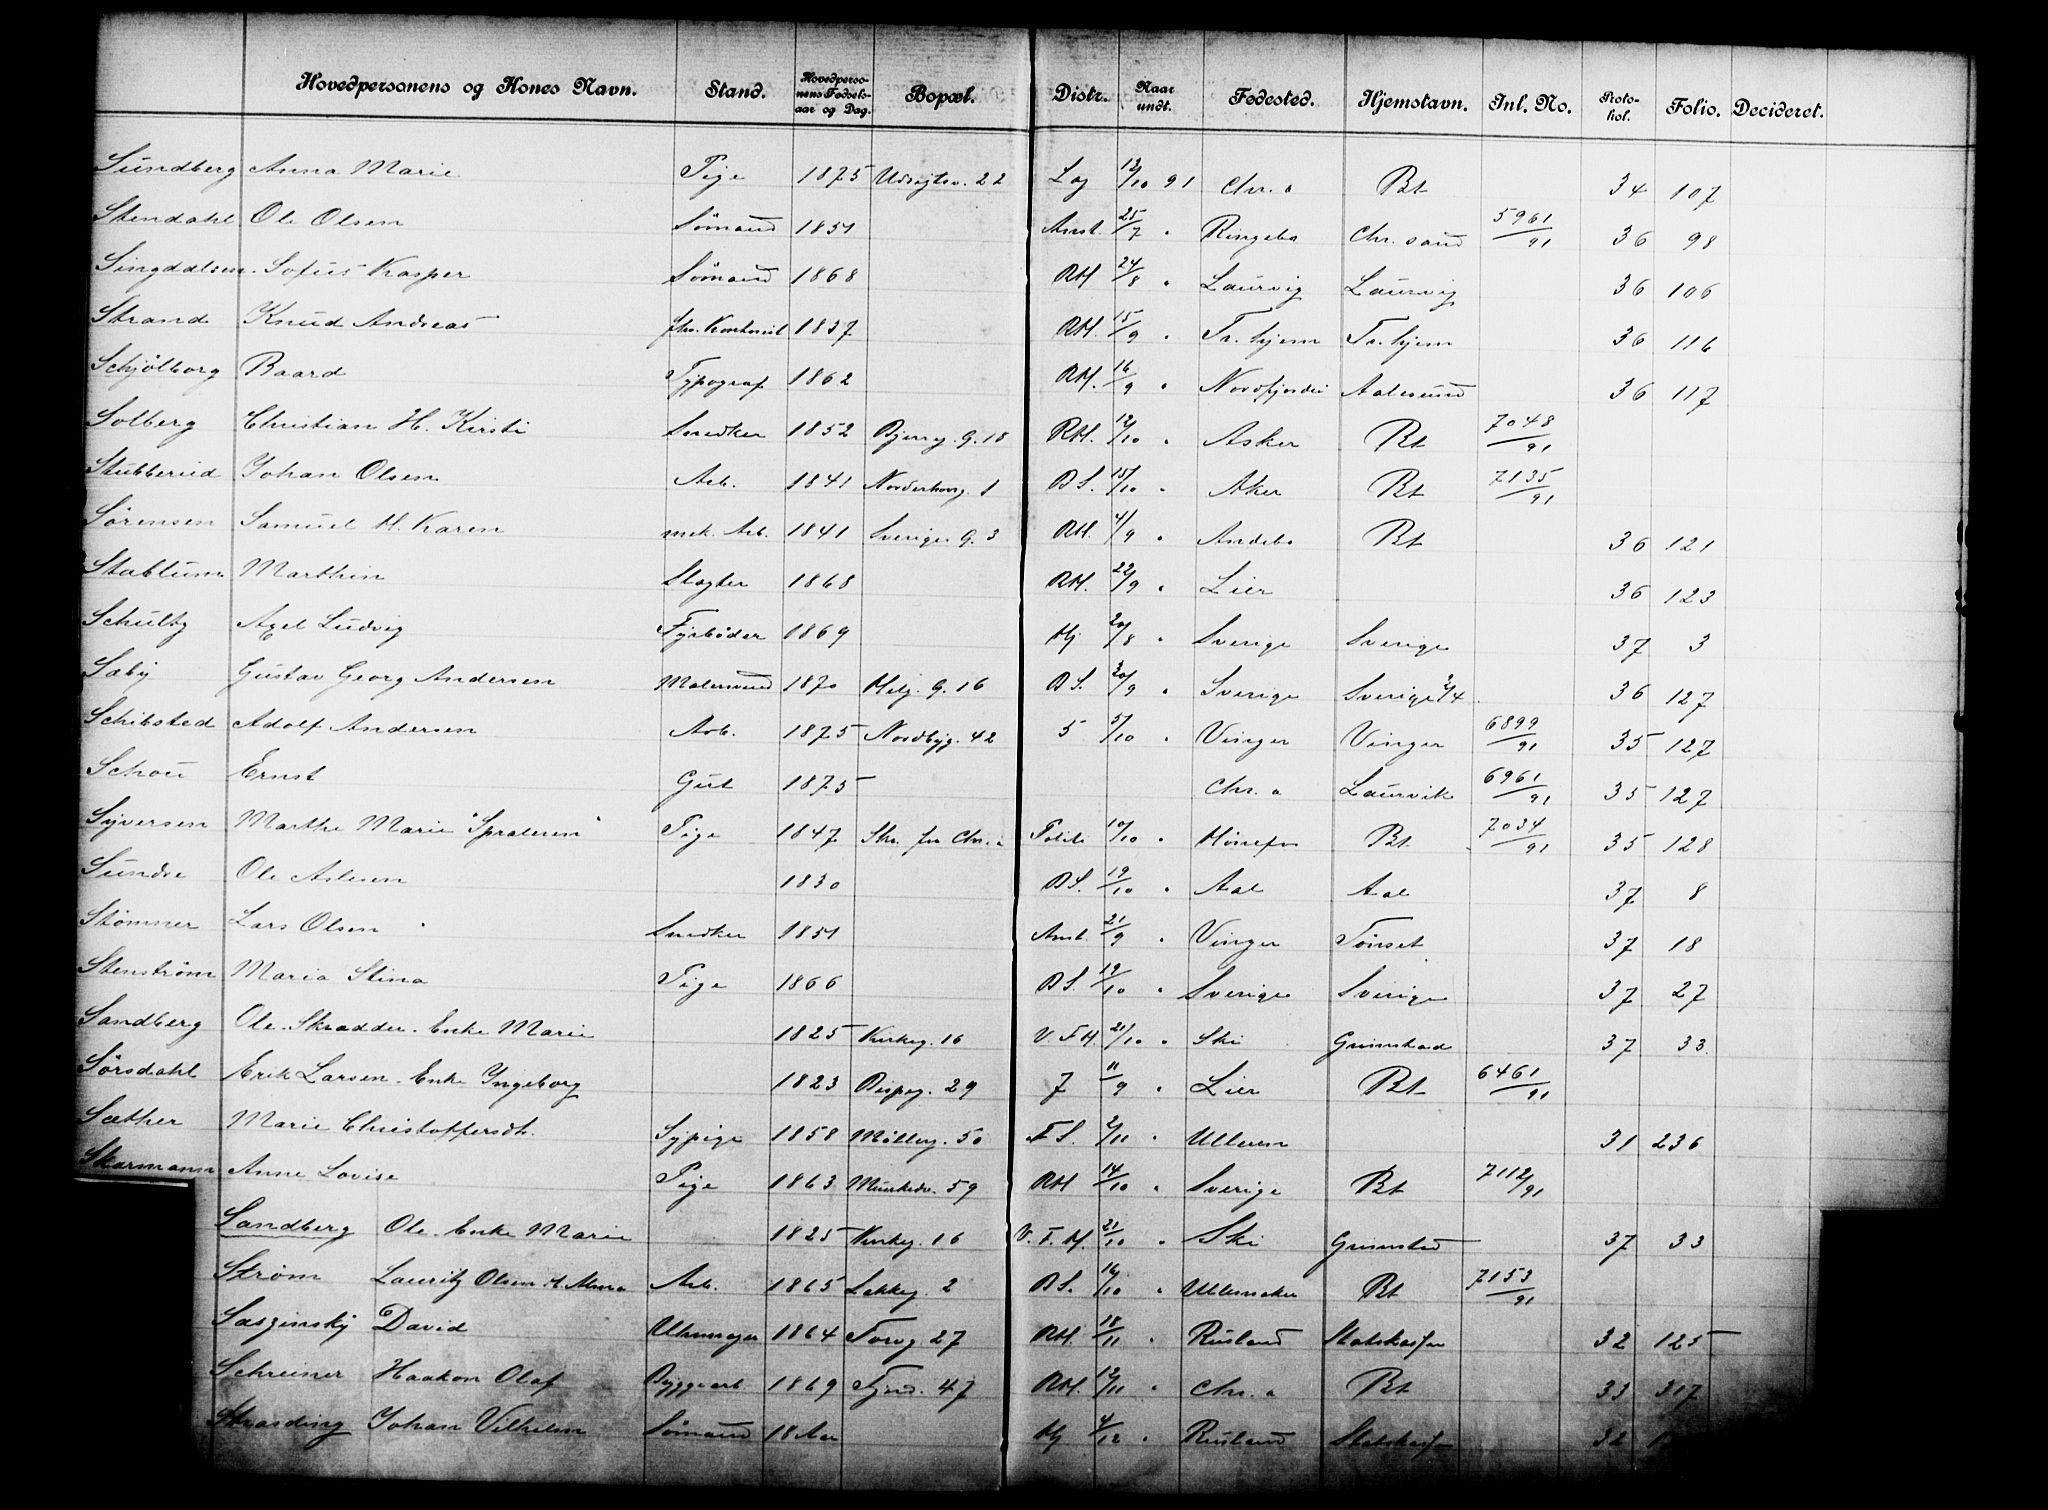 Hovedpersonens og Kones Navn. Stand. Hovedperso- nens Fødsels- aar og Dag. Bopæl. Distr. Naar undt. Fødested. Hjemstavn. Inl. No. Proto- kol. Folio. Decideret.
Sundberg Anna Marie Pige 1875 Udsigtsv. 22 Lag 13/10 91 Chr.a Bt 34 107
Stendahl Ole Olsen Sømand 1851 Amt. 25/7 " Ringebo Chr.sand 5961/91 36 98
Singdalsen Sofus Kasper Sømand 1868 RH 24/8 " Laurvig Laurvig 36 106
Strand Knud Andreas 1837 RH. 15/9 " Tr.hjem Tr.hjem 36 116
Schjølborg Baard Typograf 1862 RH. 16/9 " Nordfjordei Aalesund 36 117
Solberg Christian H. Kirsti Snedker 1852 Bjerreg. G. 18 RH. 12/10 " Asker Bt 7048/91
Stubberud Johan Olsen Arb. 1841 Norderhovg. 1 BS. 15/10 " Aker Bt 7135/91
Sørensen Samuel H. Karen mek. Arb. 1841 Sverige G. 3 RH. 4/9 " Andebo Bt 36 121
Stablum Marthin Slagter 1868 RH. 22/9 " Lier 36 123
Schultz Axel Ludvig Fyrbøder 1869 Hj 20/8 " Sverige Sverige 37 3
Sæby Gustav Georg Andersen Malersvend 1870 Helg. G. 16 BS. 30/9 " Sverige Sverige 2/4 36 127
Schibsted Adolf Andersen Arb. 1875 Nordbyg. 42 5 5/10 " Vinger Vinger 6899/91 35 127
Schou Ernst Gut 1875 Chr.a Laurvik 6961/91 35 127
Syversen Marthe Marie "Spraderen" Pige 1847 Str. fra Chr.a Politi 10/10 " Hønefos Bt 7034/91 35 128
Sundre Ole Aslesen 1830 BS. 19/10 " Aal Aal 37 8
Stømner Lars Olsen Snedker 1851 Amt. 21/9 " Vinger Tønset 37 18
Stenstrøm Maria Stina Pige 1866 BS. 19/10 " Sverige Sverige 37 27
Sandberg Ole. Skrædder. Enke Marie 1825 Kirkeg. 16 V.F.H. 21/10 " Ski Grimstad 37 33
Sørsdahl Erik Larsen. Enke Ingeborg 1823 Bispeg. 29 7 11/9 " Lier Bt 6461/91
Sæther Marie Christoffersdt. Sypige 1858 Møllerg. 50 F.S. 2/11 " Ullern 31 236
Skarmann Anne Lovise Pige 1863 Munkedv. 59 RH 14/10 " Sverige Bt 7112/91
Sandberg Ole. Enke Marie 1825 Kirkeg. 16 V.F.H. 21/10 " Ski Grimstad 37 33
Strøm Lauritz Olsen H. Alma Arb. 1865 Lakkeg. 2 BS. 16/10 " Ullensaker Bt 7153/91
Sasginsky David Uhrmager 1864 Torvg 27 RH. 18/11 " Rusland Statskassen 32 125
Schreiner Haakon Olaf Byggearb. 1869 47 RH. 12/11 " Chr.a Bt 33 317
Strasding Johan Vilhelm Sømand 18 Aar Hj 4/12 " Rusland Statskassen 32